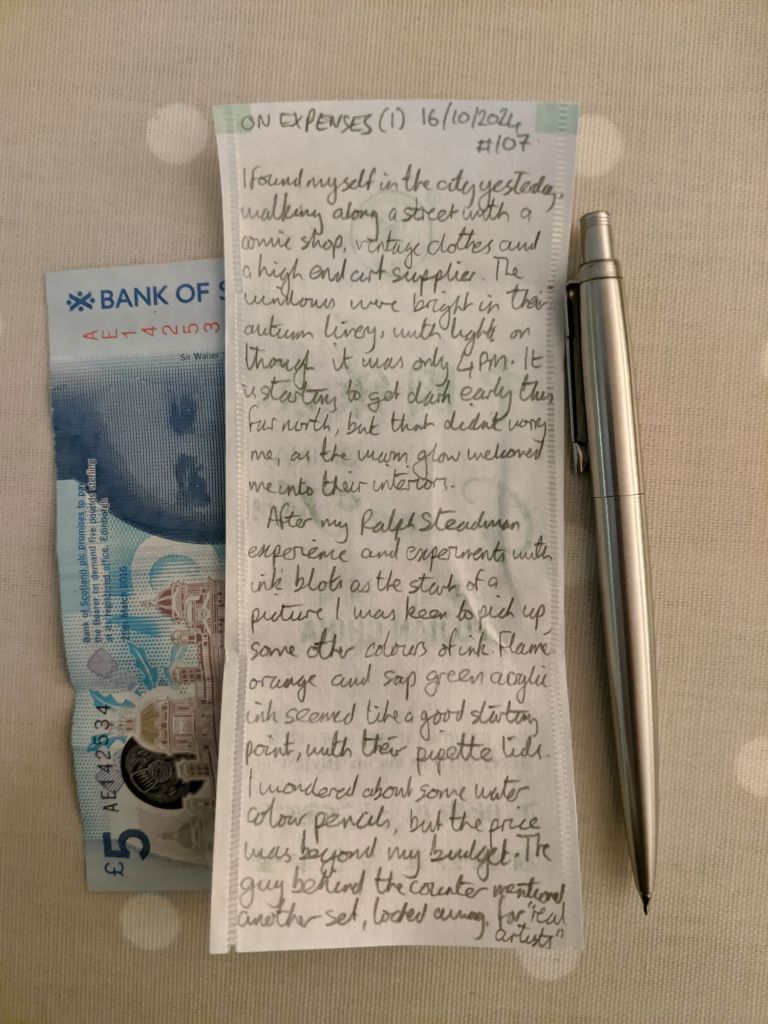 ON EXPENSES (1) 16/10/2024
#107
I found myself in the city yesterday,
walking along a street with a
comic shop, vintage clothes and
a high end art supplier. The
windows were bright in their
autumn livery, with lights on
though it was only 4PM. It
is starting to get dark early this
far north, but that didn't worry
me, as the warm glow welcomed
me into their interiors.
After my Ralph Steadman
experience and experiments with
ink blots as the start of a
picture I was keen to pick up
some other colours of ink. Flame
orange and sap green acrylic
ink seemed like a good starting
point, with their pipette lids.
I wondered about some water
colour pencils, but the price
was beyond my budget. The
guy behind the counter mentioned
another set, locked away, for "real
artists"
BANK OF S
AE142533
Sir Walter
Bank of Scotland plc promises to pay
the Bearer on demand five pounds sterling
at its registered office, Edinburgh
25th March 2016
AE142534
£5